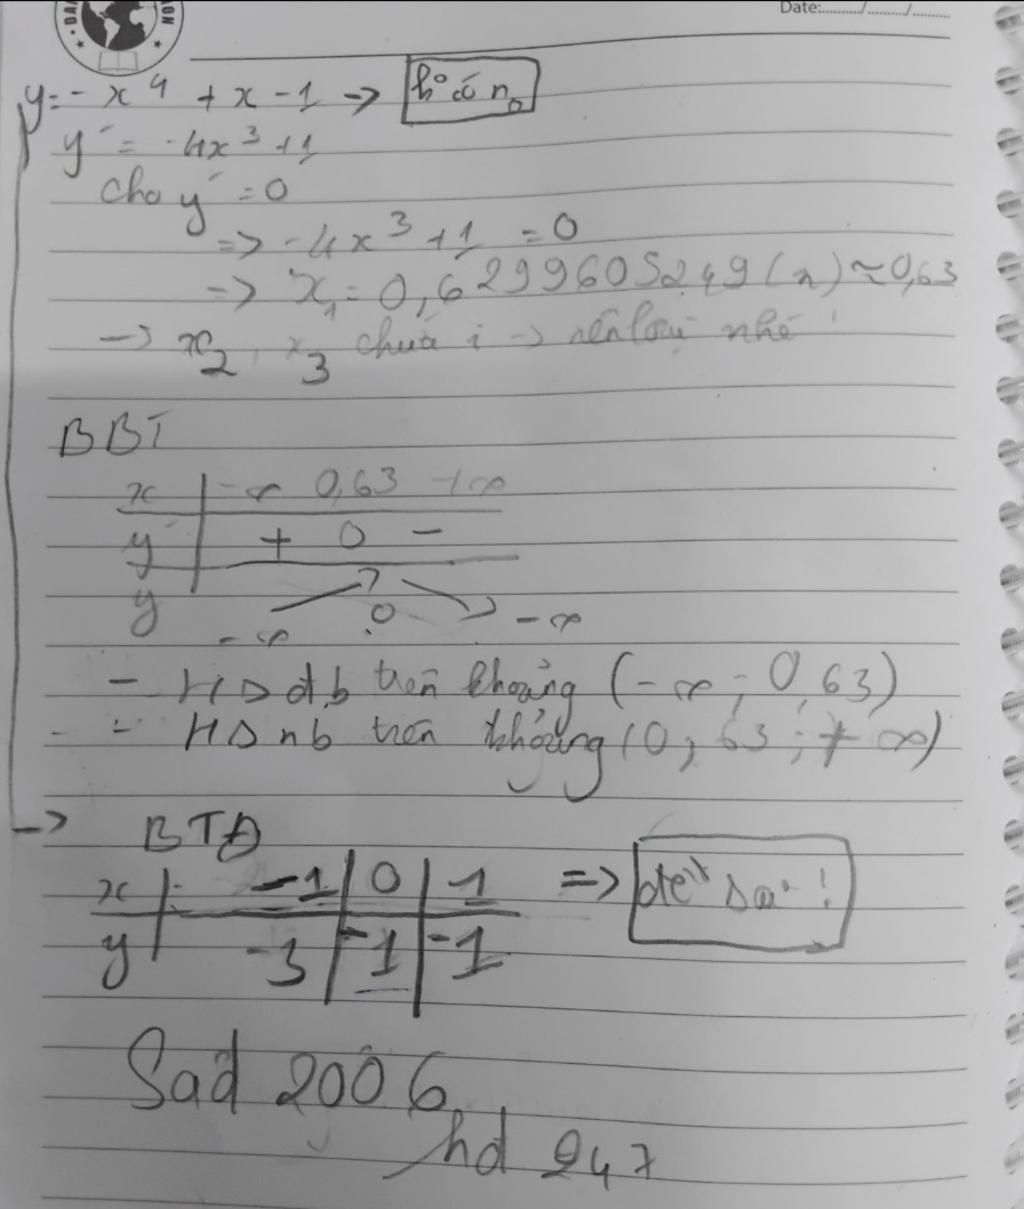 Date:......../......../.........
y = - x⁴ + x - 1 → k° có n₀
y' = -4x³ + 1
cho y' = 0
=> -4x³ + 1 = 0
=> x₁ = 0,6299605249 (n) ≈ 0,63
→ x₂, x₃ chứa i → nên loại nhé !
BBT
x | -∞ 0,63 +∞
y' | + 0 -
y
-∞ 0 -∞
- HS đb trên khoảng (-∞; 0,63)
- HS nb trên khoảng (0,63; +∞)
→ BTĐ
x | -1 | 0 | 1 => đề sai !
y | -3 | -1 | -1
Sad 2006
hd 247